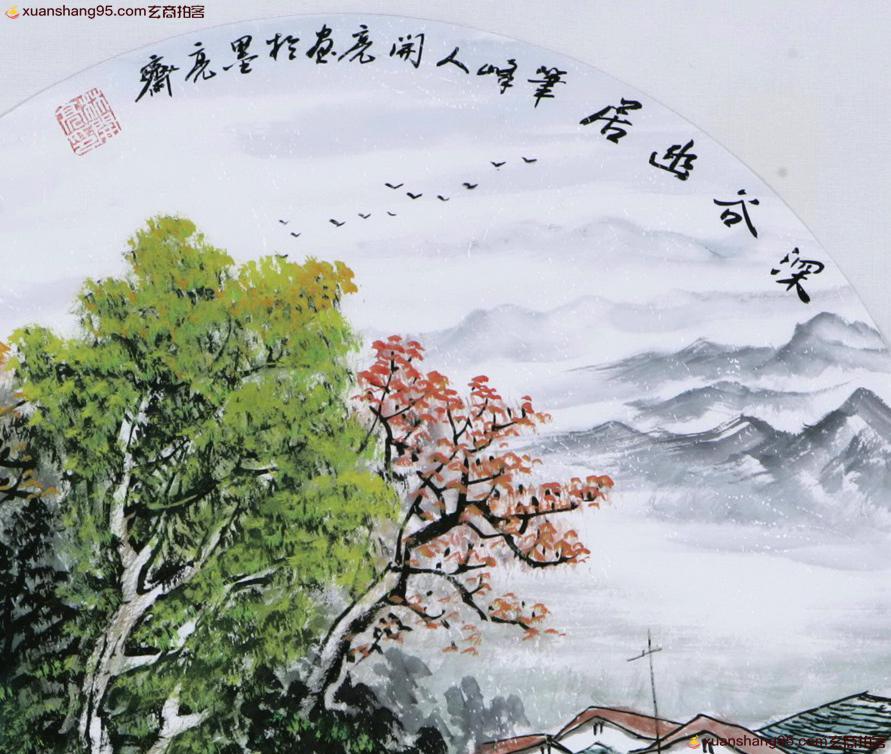 xuanshang95.com玄商拍客
深谷幽居 笔峰人開亮画於墨亮齋
xuanshang95.com玄商拍客